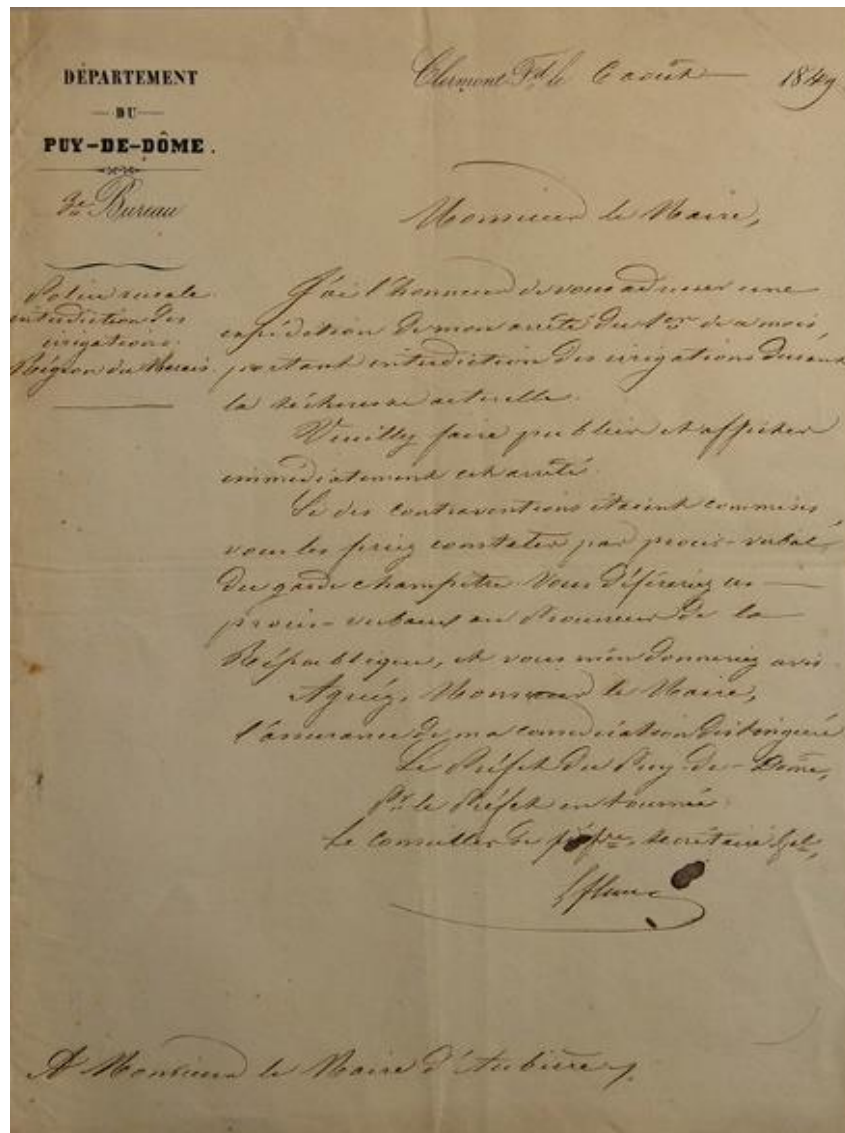 DÉPARTEMENT
DU
PUY-DE-DÔME.
3e Bureau
Clermont Fd le 6 août 1849
Police rurale
interdiction des
irrigations.
Région du Marais.
Monsieur le Maire,
J'ai l'honneur de vous adresser une
expédition de mon arrêté du 1er de ce mois,
portant interdiction des irrigations durant
la sécheresse actuelle.
Veuillez faire publier et afficher
immédiatement cet arrêté.
Si des contraventions étaient commises
vous les feriez constater par procès-verbal
du garde champêtre. Vous déféreriez ces
procès-verbaux au Procureur de la
République, et vous m'en donneriez avis.
Agréez, Monsieur le Maire,
l'assurance de ma considération distinguée
Le Préfet du Puy-de-Dôme,
Pr le Préfet en tournée
Le Conseiller de préfre, secrétaire Gal,
A Monsieur le Maire d'Aubière